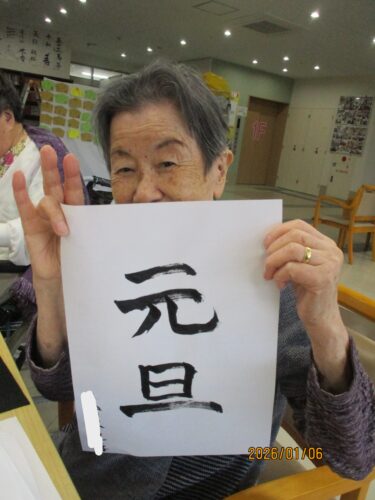 元
旦
1F
2026/01/06